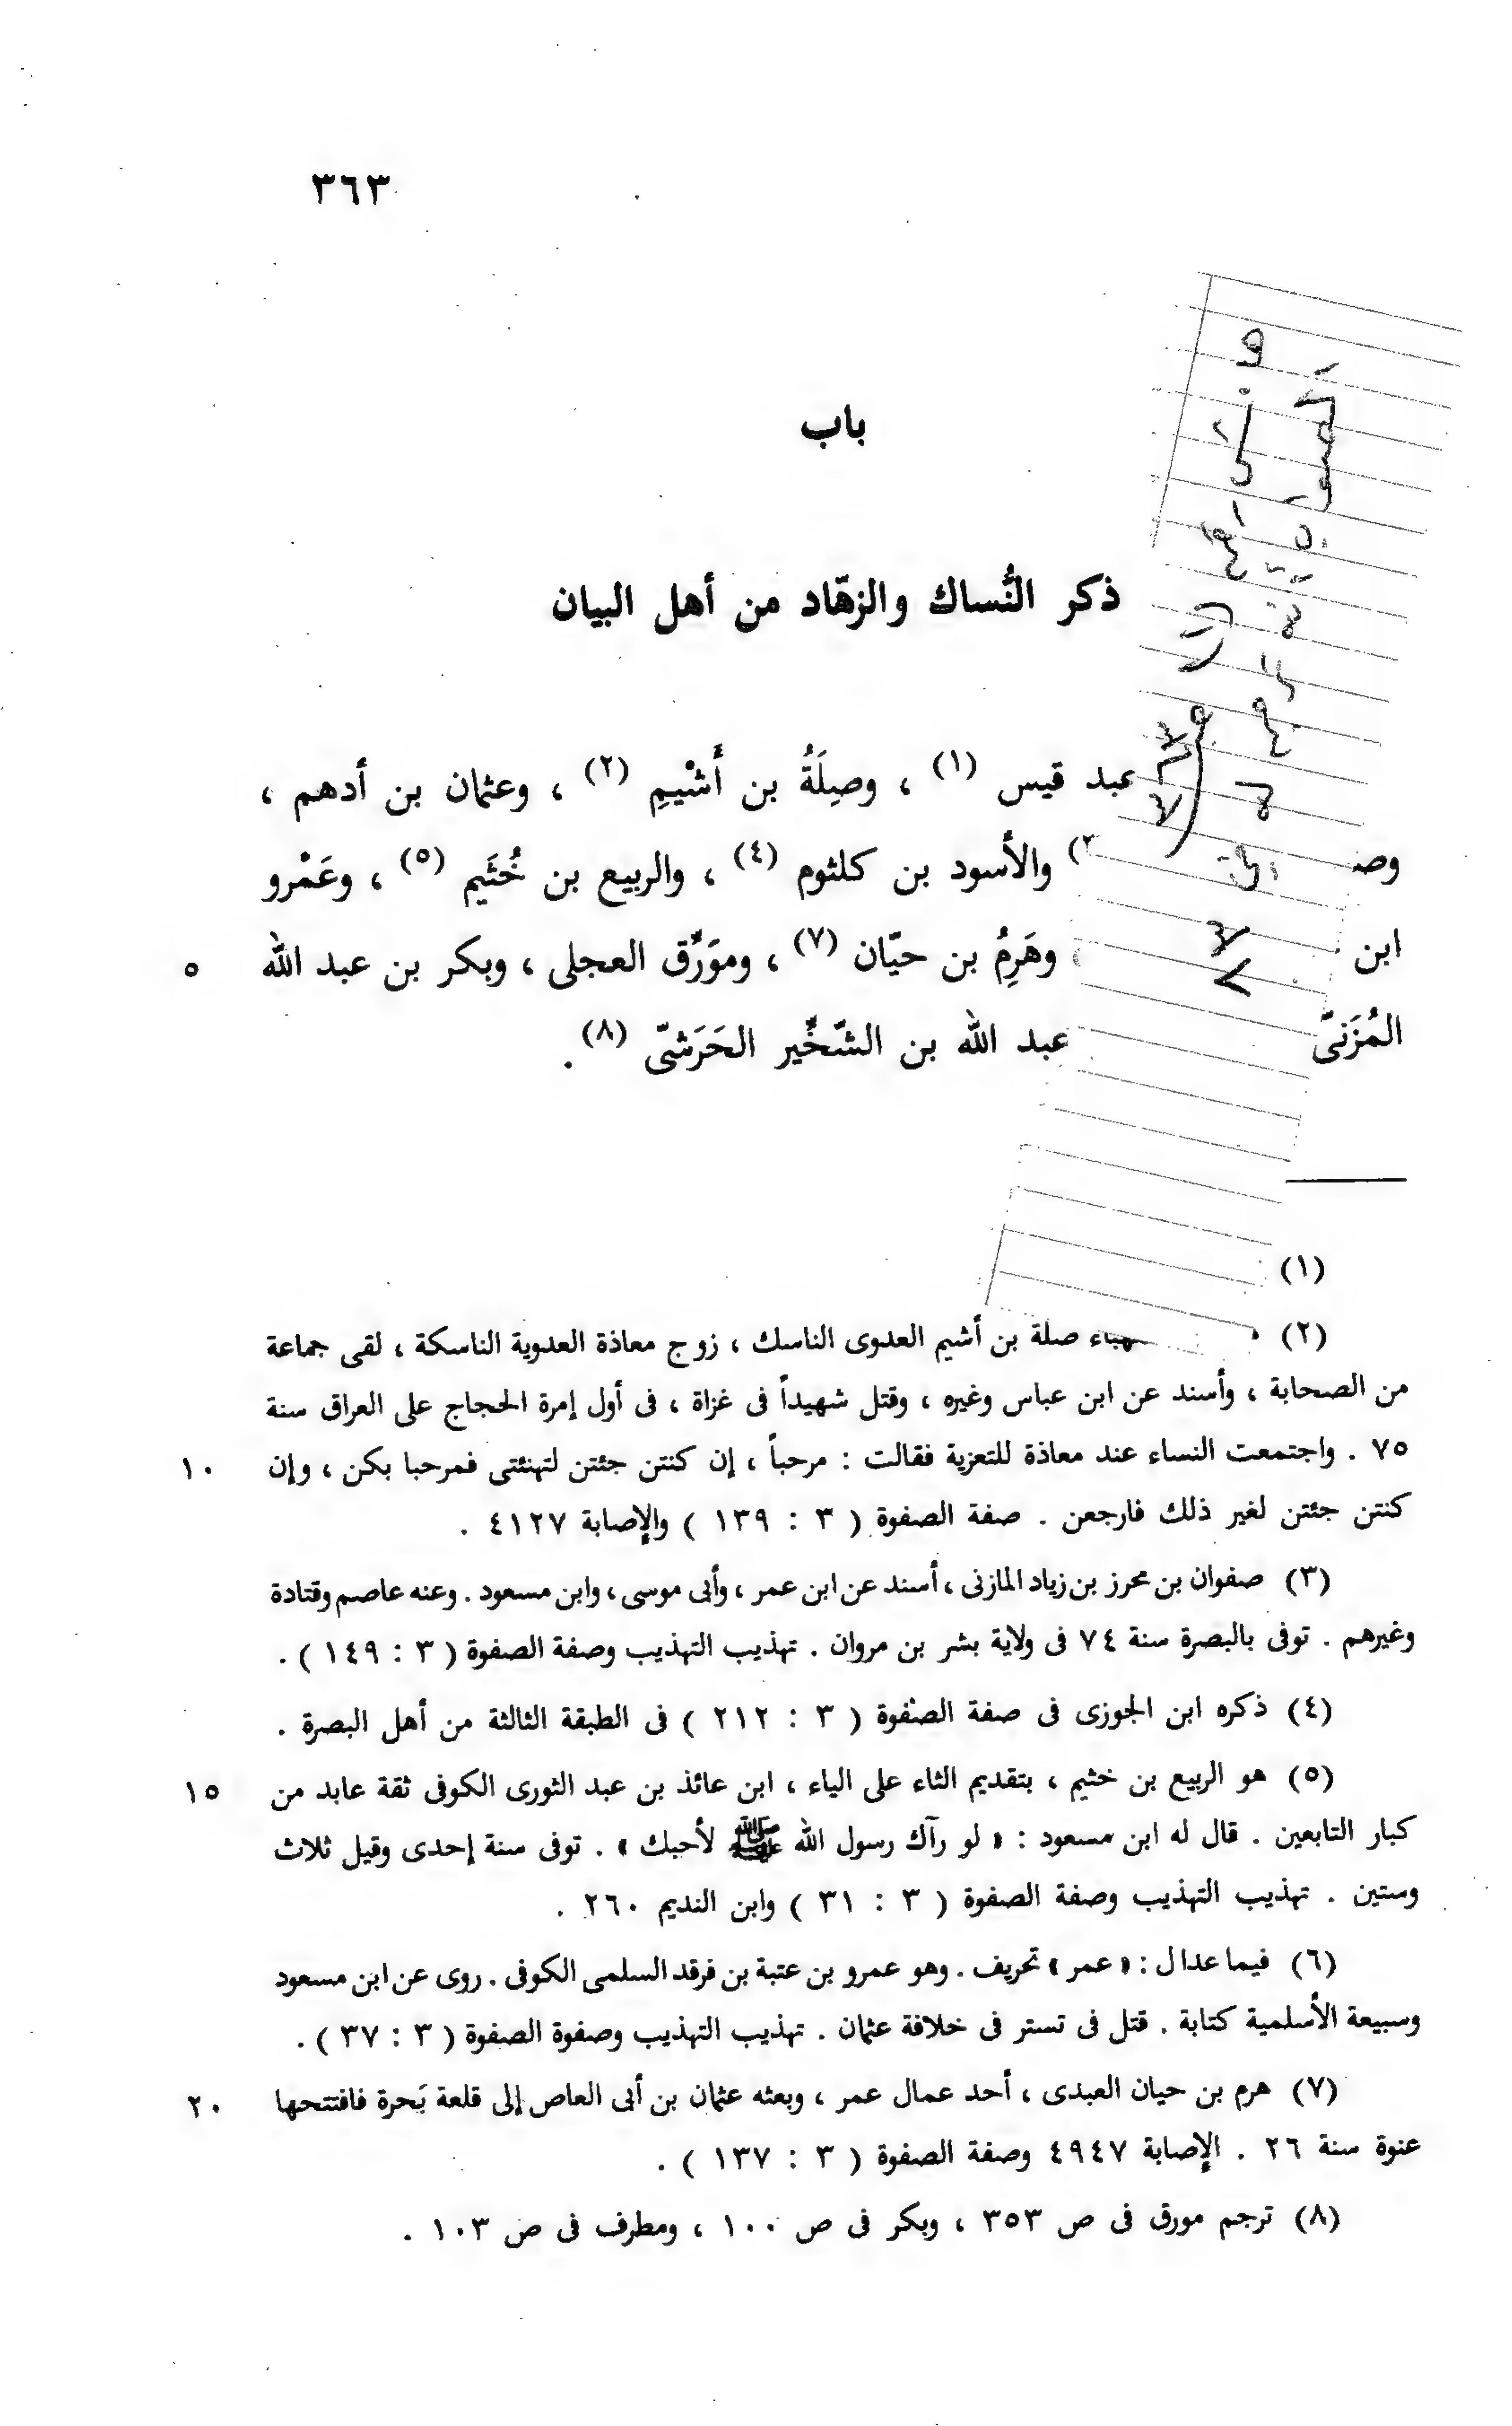 ٣٦٣
باب
ذكر النُّساك والزهّاد من أهل البيان
عبد قيس (١) ، وصِلَةُ بن أَشْيمِ (٢) ، وعثمان بن أدهم ،
وصـ والأسود بن كلثوم (٤) ، والربيع بن خُثَيم (٥) ، وعَمْرو
ابن وهَرِمُ بن حيّان (٧) ، ومورِّق العجلى ، وبكر بن عبد الله ٥
المُزَنىّ عبد الله بن الشّخِّير الحَرَشىّ (٨) .
(١)
(٢) ـهباء صلة بن أشيم العدوى الناسك ، زوج معاذة العدوية الناسكة ، لقى جماعة
من الصحابة ، وأسند عن ابن عباس وغيره ، وقتل شهيداً فى غزاة ، فى أول إمرة الحجاج على العراق سنة
٧٥ . واجتمعت النساء عند معاذة للتعزية فقالت : مرحباً ، إن كنتن جئتن لتهنئتى فمرحبا بكن ، وإن ١٠
كنتن جئتن لغير ذلك فارجعن . صفة الصفوة ( ٣ : ١٣٩ ) والإصابة ٤١٢٧ .
(٣) صفوان بن محرز بن زياد المازنى ، أسند عن ابن عمر ، وأبى موسى ، وابن مسعود . وعنه عاصم وقتادة
وغيرهم . توفى بالبصرة سنة ٧٤ فى ولاية بشر بن مروان . تهذيب التهذيب وصفة الصفوة ( ٣ : ١٤٩ ) .
(٤) ذكره ابن الجوزى فى صفة الصفوة ( ٣ : ٢١٢ ) فى الطبقة الثالثة من أهل البصرة .
(٥) هو الربيع بن خثيم ، بتقديم الثاء على الياء ، ابن عائذ بن عبد الثورى الكوفى ثقة عابد من ١٥
كبار التابعين . قال له ابن مسعود : « لو رآك رسول الله ﷺ لأحبك » . توفى سنة إحدى وقيل ثلاث
وستين . تهذيب التهذيب وصفة الصفوة ( ٣ : ٣١ ) وابن النديم ٢٦٠ .
(٦) فيما عدا ل : « عمر » تحريف . وهو عمرو بن عتبة بن فرقد السلمى الكوفى . روى عن ابن مسعود
وسبيعة الأسلمية كتابة . قتل فى تستر فى خلافة عثمان . تهذيب التهذيب وصفوة الصفوة ( ٣ : ٣٧ ) .
(٧) هرم بن حيان العبدى ، أحد عمال عمر ، وبعثه عثمان بن أبى العاص إلى قلعة بَحرة فافتتحها ٢٠
عنوة سنة ٢٦ . الإصابة ٤٩٤٧ وصفة الصفوة ( ٣ : ١٣٧ ) .
(٨) ترجم مورق فى ص ٣٥٣ ، وبكر فى ص ١٠٠ ، ومطرف فى ص ١٠٣ .